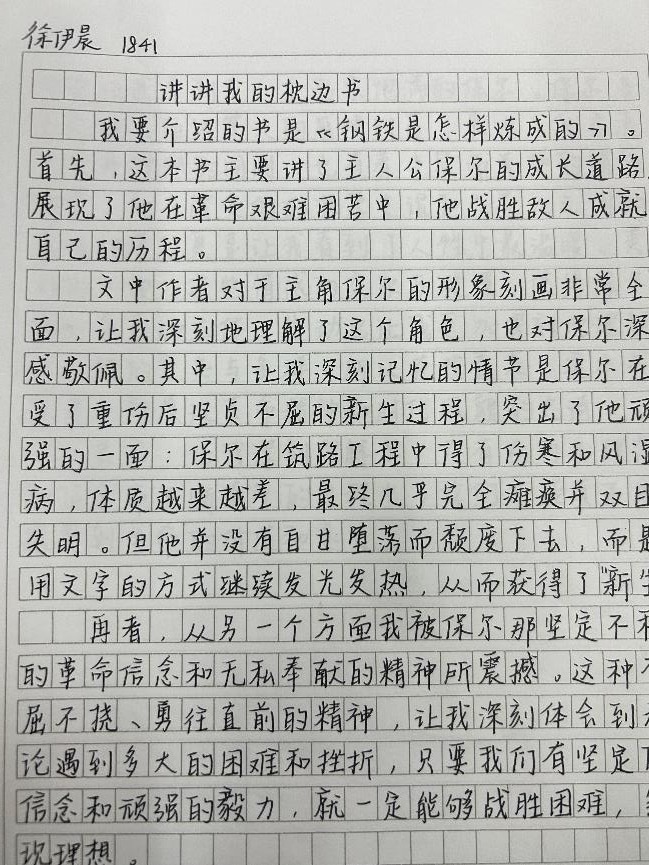 徐伊晨 1841
讲讲我的枕边书
我要介绍的书是《钢铁是怎样炼成的》。
首先，这本书主要讲了主人公保尔的成长道路，
展现了他在革命艰难困苦中，他战胜敌人成就
自己的历程。
文中作者对于主角保尔的形象刻画非常全
面，让我深刻地理解了这个角色，也对保尔深
感敬佩。其中，让我深刻记忆的情节是保尔在
受了重伤后坚贞不屈的新生过程，突出了他顽
强的一面：保尔在筑路工程中得了伤寒和风湿
病，体质越来越差，最终几乎完全瘫痪并双目
失明。但他并没有自甘堕落而颓废下去，而是
用文字的方式继续发光发热，从而获得了"新生
再者，从另一个方面我被保尔那坚定不移
的革命信念和无私奉献的精神所震撼。这种不
屈不挠、勇往直前的精神，让我深刻体会到无
论遇到多大的困难和挫折，只要我们有坚定的
信念和顽强的毅力，就一定能够战胜困难，
现理想。